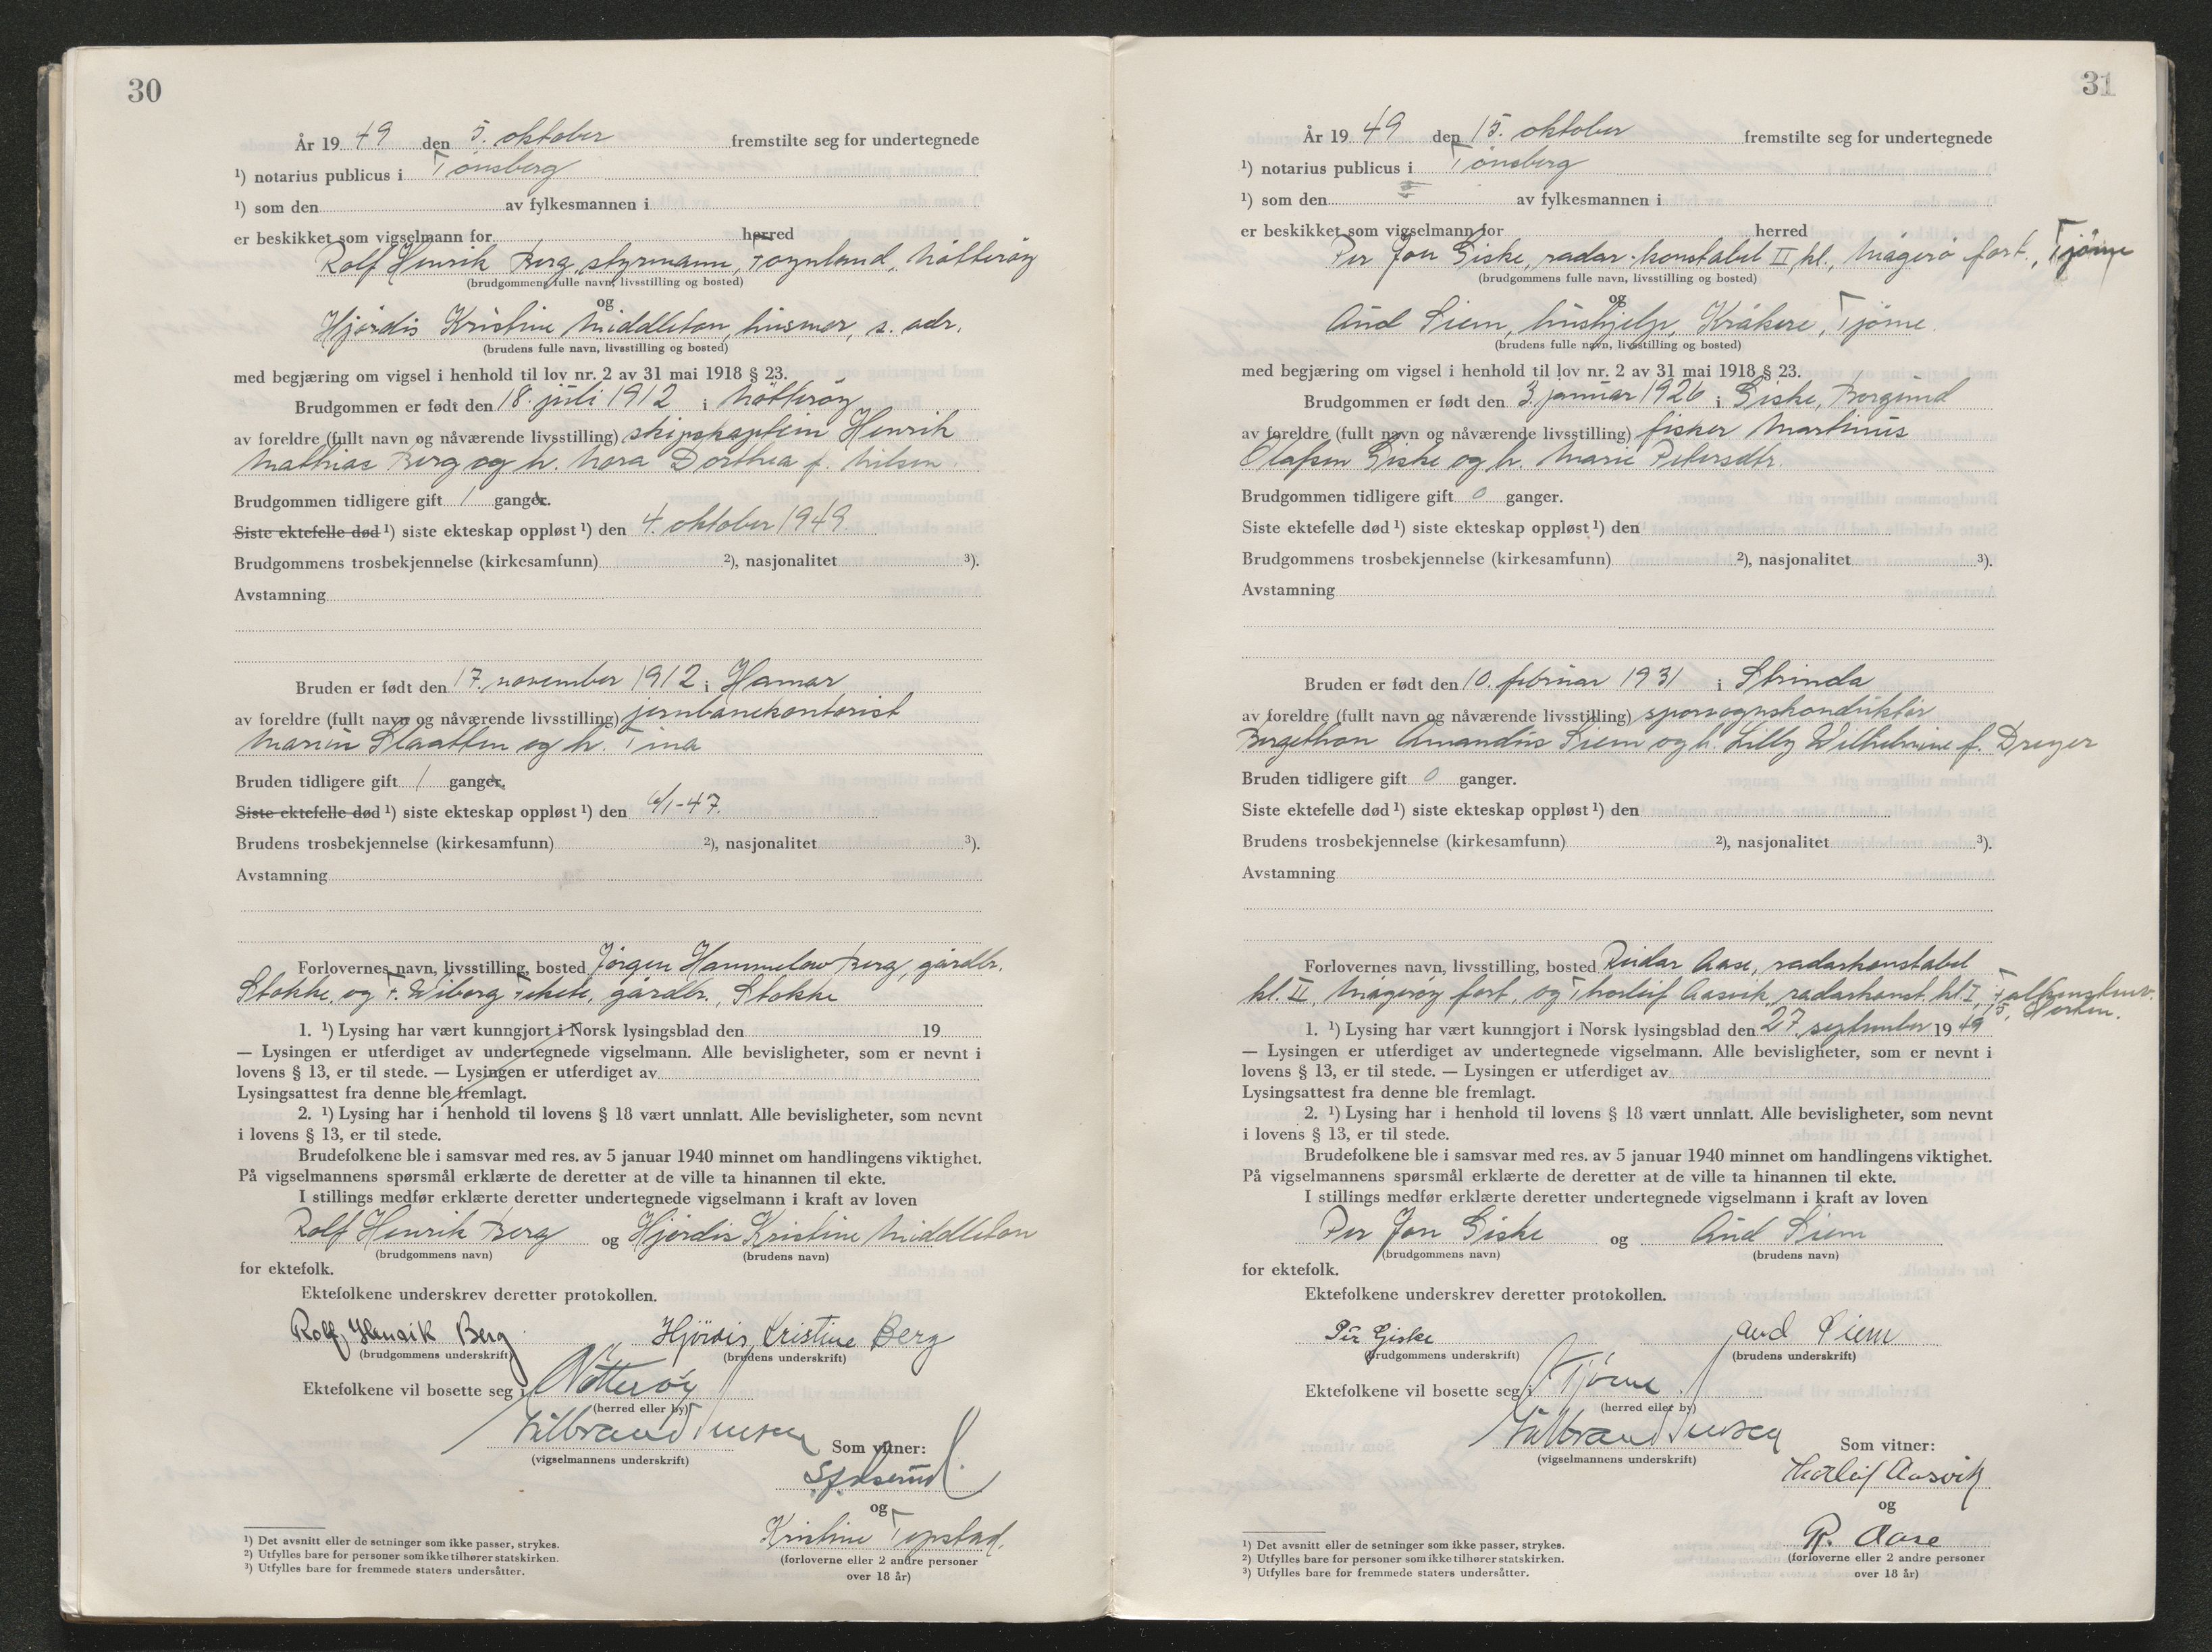 30
År 1949 den 5. oktober fremstilte seg for undertegnede
¹) notarius publicus i Tønsberg
¹) som den av fylkesmannen i
er beskikket som vigselmann for herred
Rolf Henrik Berg, styrmann, Føynland, Nøtterøy
(brudgommens fulle navn, livsstilling og bosted)
og
Hjørdis Kristine Middleton, husmor, s. adr.
(brudens fulle navn, livsstilling og bosted)
med begjæring om vigsel i henhold til lov nr. 2 av 31 mai 1918 § 23.
Brudgommen er født den 18. juli 1912 i Nøtterøy
av foreldre (fullt navn og nåværende livsstilling) skipskaptein Henrik
Mathias Berg og h. Nora Dorthea f. Nilsen
Brudgommen tidligere gift 1 ganger.
Siste ektefelle død ¹) siste ekteskap oppløst ¹) den 4. oktober 1949.
Brudgommens trosbekjennelse (kirkesamfunn) ²), nasjonalitet ³).
Avstamning
Bruden er født den 17. november 1912 i Hamar
av foreldre (fullt navn og nåværende livsstilling) jernbanekontorist
Marius Slaatten og h. Tina
Bruden tidligere gift 1 ganger.
Siste ektefelle død ¹) siste ekteskap oppløst ¹) den 6/1-47.
Brudens trosbekjennelse (kirkesamfunn) ²), nasjonalitet ³).
Avstamning
Forlovernes navn, livsstilling, bosted Jørgen Hammelow Berg, gårdbr.
Stokke, og F. Wiborg Thekete, gårdbr., Stokke
1. ¹) Lysing har vært kunngjort i Norsk lysingsblad den 19
— Lysingen er utferdiget av undertegnede vigselmann. Alle bevisligheter, som er nevnt i
lovens § 13, er til stede. — Lysingen er utferdiget av
Lysingsattest fra denne ble fremlagt.
2. ¹) Lysing har i henhold til lovens § 18 vært unnlatt. Alle bevisligheter, som nevnt
i lovens § 13, er til stede.
Brudefolkene ble i samsvar med res. av 5 januar 1940 minnet om handlingens viktighet.
På vigselmannens spørsmål erklærte de deretter at de ville ta hinannen til ekte.
I stillings medfør erklærte deretter undertegnede vigselmann i kraft av loven
Rolf Henrik Berg og Hjørdis Kristine Middleton
(brudgommens navn) (brudens navn)
for ektefolk.
Ektefolkene underskrev deretter protokollen.
Rolf Henrik Berg Hjördis Kristine Berg
(brudgommens underskrift) (brudens underskrift)
Ektefolkene vil bosette seg i Nøtterøy
(herred eller by)
(vigselmannens underskrift)
Som vitner:
og
Kristine Topstad.
(forloverne eller 2 andre personer
over 18 år)
¹) Det avsnitt eller de setninger som ikke passer, strykes.
²) Utfylles bare for personer som ikke tilhører statskirken.
³) Utfylles bare for fremmede staters undersåtter.
31
År 1949 den 15. oktober fremstilte seg for undertegnede
¹) notarius publicus i Tønsberg
¹) som den av fylkesmannen i
er beskikket som vigselmann for herred
Per Jon Giske, radar-konstabel II kl., Mågerø fort, Tjøme
(brudgommens fulle navn, livsstilling og bosted)
og
Aud Siem, hushjelp, Kråkere, Tjøme.
(brudens fulle navn, livsstilling og bosted)
med begjæring om vigsel i henhold til lov nr. 2 av 31 mai 1918 § 23.
Brudgommen er født den 3. januar 1926 i Giske, Borgund
av foreldre (fullt navn og nåværende livsstilling) fisker Martinus
Olafsen Giske og h. Marie Petersdtr.
Brudgommen tidligere gift 0 ganger.
Siste ektefelle død ¹) siste ekteskap oppløst ¹) den
Brudgommens trosbekjennelse (kirkesamfunn) ²), nasjonalitet ³).
Avstamning
Bruden er født den 10. februar 1931 i Strinda
av foreldre (fullt navn og nåværende livsstilling) sporvognskonduktør
Bergethon Amandus Siem og h. Lilly Wilhelmine f. Dreyer
Bruden tidligere gift 0 ganger.
Siste ektefelle død ¹) siste ekteskap oppløst ¹) den
Brudens trosbekjennelse (kirkesamfunn) ²), nasjonalitet ³).
Avstamning
Forlovernes navn, livsstilling, bosted Reidar Aase, radarkonstabel
kl. II, Mågerøy fort, og Thorleif Aasvik, radarkonst. kl. I, Falkenstenv.
15, Horten.
1. ¹) Lysing har vært kunngjort i Norsk lysingsblad den 27. september 1949
— Lysingen er utferdiget av undertegnede vigselmann. Alle bevisligheter, som er nevnt i
lovens § 13, er til stede. — Lysingen er utferdiget av
Lysingsattest fra denne ble fremlagt.
2. ¹) Lysing har i henhold til lovens § 18 vært unnlatt. Alle bevisligheter, som nevnt
i lovens § 13, er til stede.
Brudefolkene ble i samsvar med res. av 5 januar 1940 minnet om handlingens viktighet.
På vigselmannens spørsmål erklærte de deretter at de ville ta hinannen til ekte.
I stillings medfør erklærte deretter undertegnede vigselmann i kraft av loven
Per Jon Giske og Aud Siem
(brudgommens navn) (brudens navn)
for ektefolk.
Ektefolkene underskrev deretter protokollen.
Per Giske Aud Siem
(brudgommens underskrift) (brudens underskrift)
Ektefolkene vil bosette seg i Tjøme
(herred eller by)
(vigselmannens underskrift)
Som vitner:
Thorleif Aasvik
og
R. Aase
(forloverne eller 2 andre personer
over 18 år)
¹) Det avsnitt eller de setninger som ikke passer, strykes.
²) Utfylles bare for personer som ikke tilhører statskirken.
³) Utfylles bare for fremmede staters undersåtter.